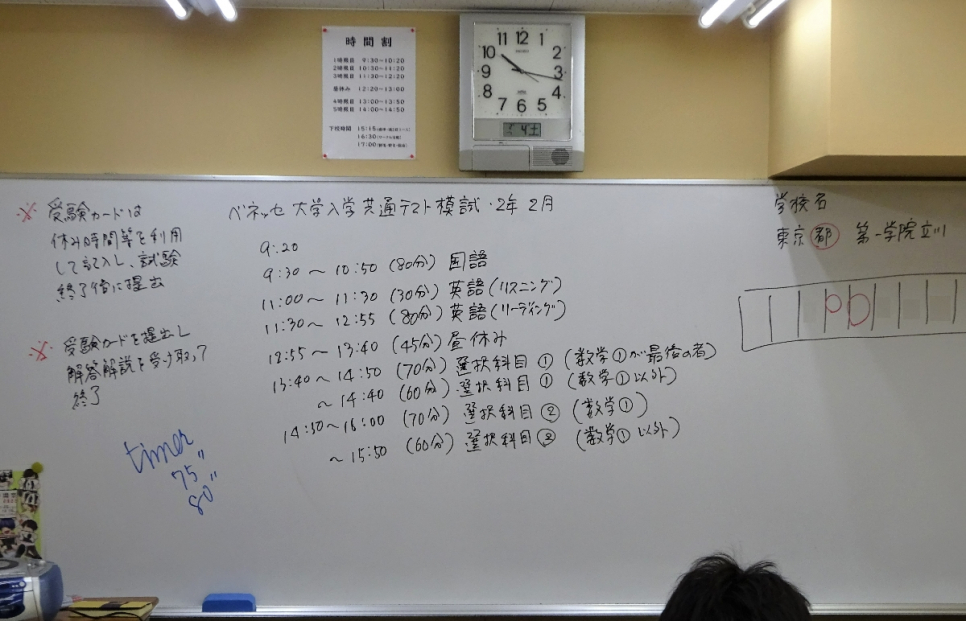 時間割
1時限目 9:30~10:20
2時限目 10:30~11:20
3時限目 11:30~12:20
昼休み 12:20~13:00
4時限目 13:00~13:50
5時限目 14:00~14:50
下校時間 15:15
16:30
17:00
11 12 1
10 2
9 3
8 4
7 6 5
4 土
※ 受験カードは
休み時間等を利用
して記入し、試験
終了後に提出
※ 受験カードを提出し
解答解説を受け取って
終了
timer
75"
80"
ベネッセ 大学入学共通テスト模試・2年2月
9:20
9:30 ~ 10:50 (80分) 国語
11:00 ~ 11:30 (30分) 英語(リスニング)
11:30 ~ 12:55 (80分) 英語(リーディング)
12:55 ~ 13:40 (45分) 昼休み
13:40 ~ 14:50 (70分) 選択科目① (数学①が最後の者)
~ 14:40 (60分) 選択科目① (数学①以外)
14:50~16:00 (70分) 選択科目② (数学①)
~ 15:50 (60分) 選択科目② (数学①以外)
学校名
東京都 第一学院立川